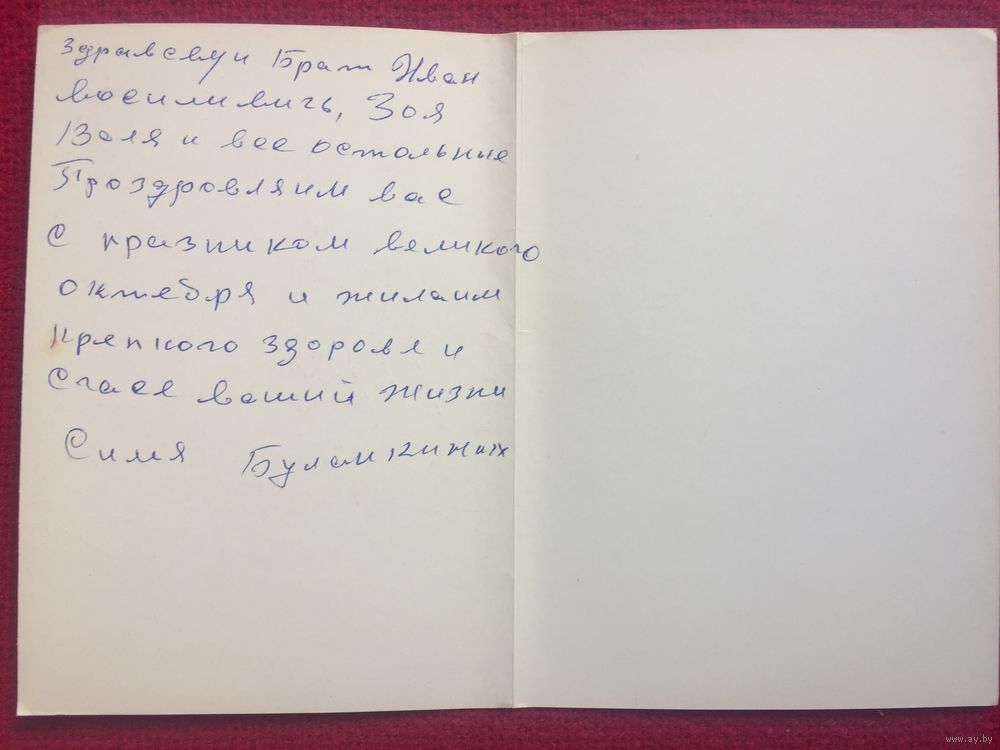 здравсвуи Брат Иван
восиливичь, Зоя
Валя и все остольные
Проздровляим вас
С празником великого
октебря и жилаим
крепкого здоровя и
Счася вашии жизни
Симя Буланкиных
www.ay.by